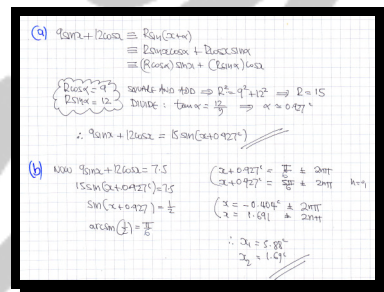 (a) 9sinx + 12cosx ≡ Rsin(x+α)
≡ Rsinxcosα + Rcosxsinα
≡ (Rcosα)sinx + (Rsinα)cosx
Rcosα = 9
Rsinα = 12
SQUARE AND ADD ⇒ R² = 9² + 12² ⇒ R = 15
DIVIDE : tanα = 12/9 ⇒ α ≈ 0.927ᶜ
∴ 9sinx + 12cosx = 15sin(x+0.927ᶜ)
(b) NOW 9sinx + 12cosx = 7.5
15sin(x+0.927ᶜ) = 7.5
sin(x+0.927) = 1/2
arcsin(1/2) = π/6
x+0.927ᶜ = π/6 ± 2nπ
x+0.927ᶜ = 5π/6 ± 2nπ
x = -0.404ᶜ ± 2nπ
x = 1.691 ± 2nπ
∴ x₁ = 5.88ᶜ
x₂ = 1.69ᶜ